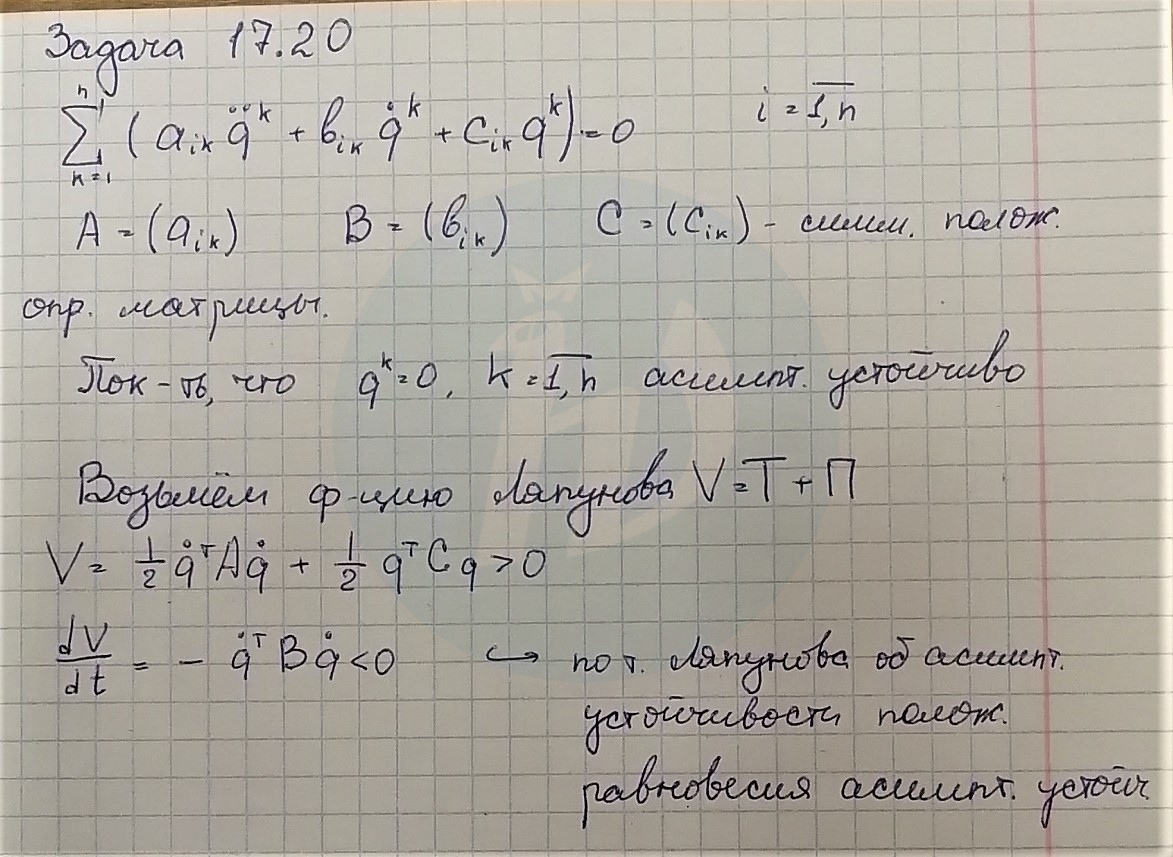 Задача 17.20
∑_{k=1}^{n} (a_{ik} q̈^k + b_{ik} q̇^k + c_{ik} q^k) = 0 i = \overline{1,n}
A = (a_{ik}) B = (b_{ik}) C = (c_{ik}) - симм. полож.
опр. матрицы.
Пок-ть, что q^k = 0, k = \overline{1,n} асимпт. устойчиво
Возьмём ф-цию Ляпунова V = T + П
V = 1/2 q̇^T A q̇ + 1/2 q^T C q > 0
dV/dt = - q̇^T B q̇ < 0 ↪ по т. Ляпунова об асимпт.
устойчивости полож.
равновесия асимпт. устойч.